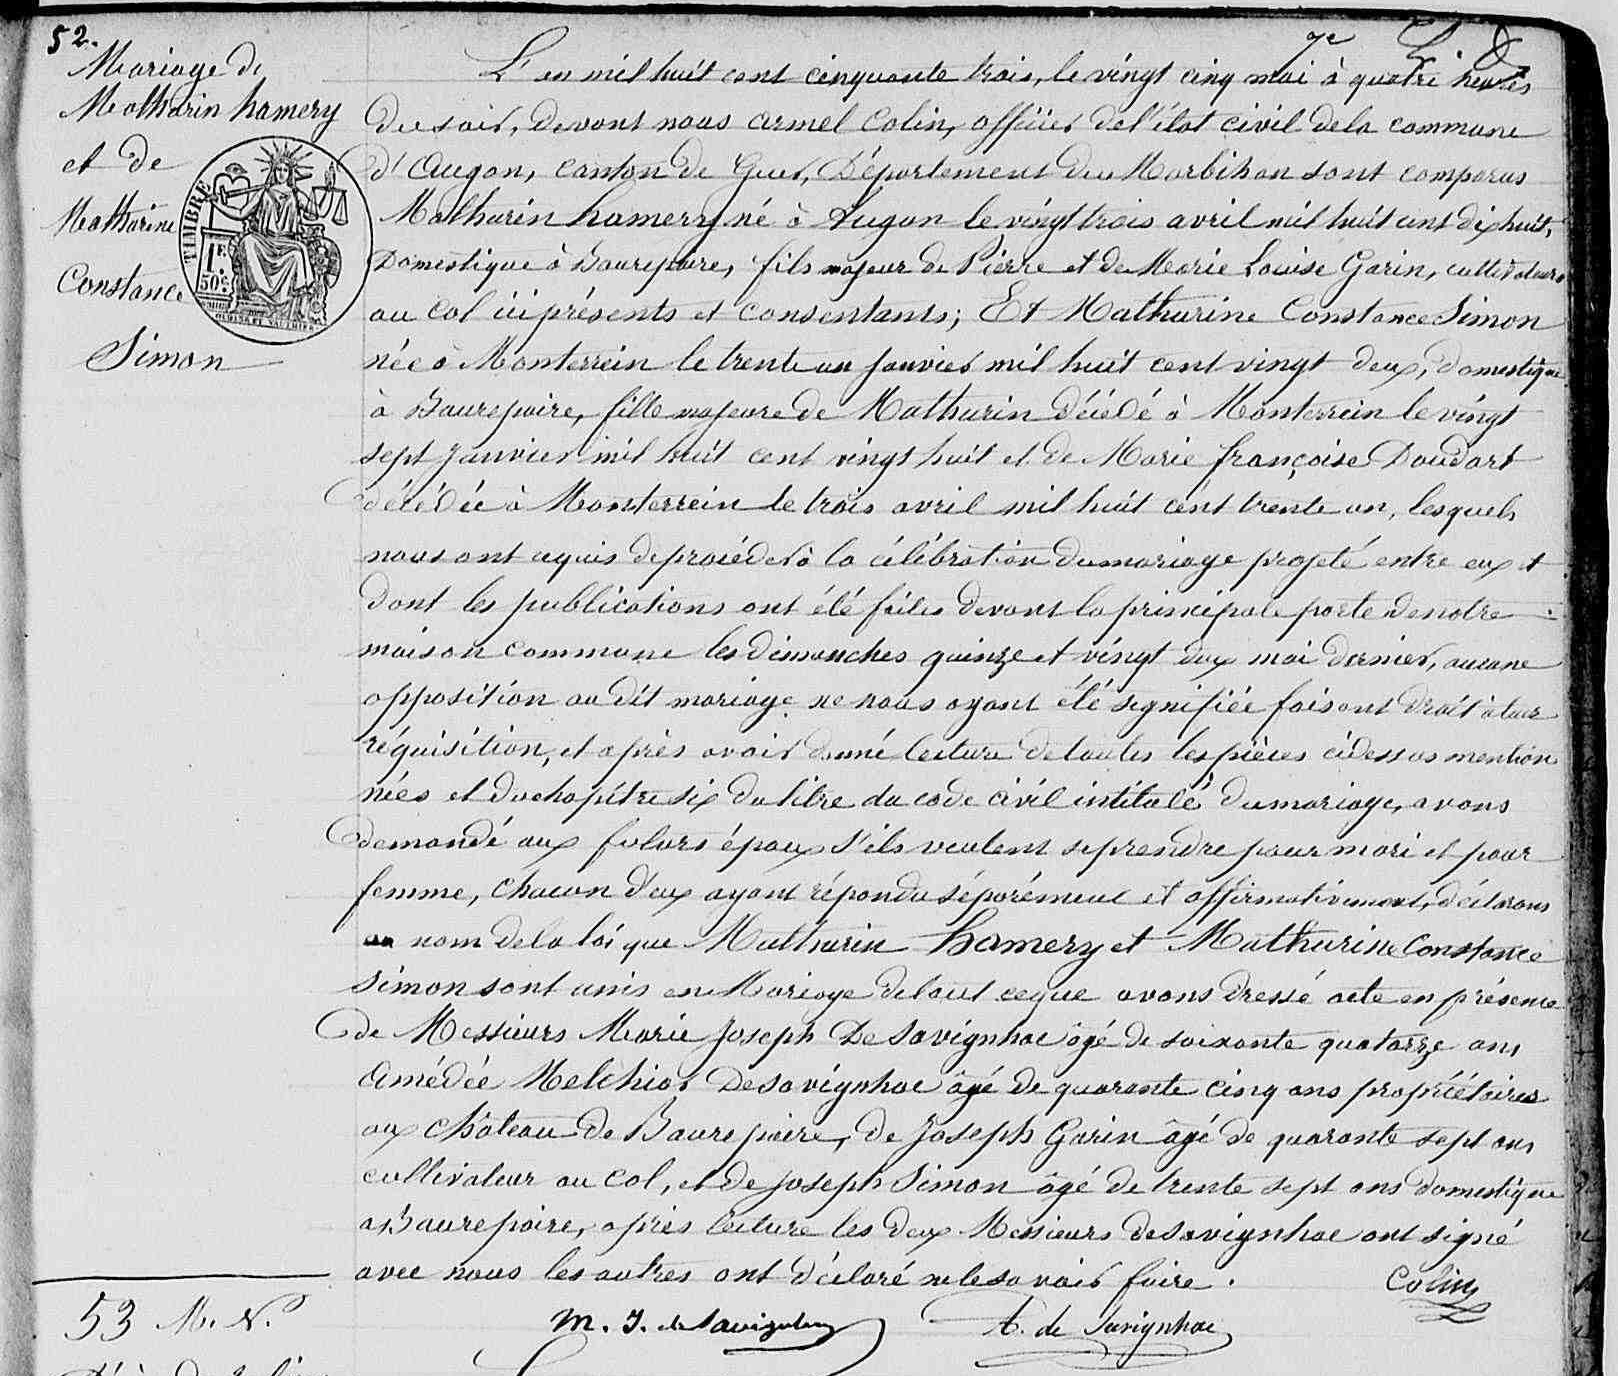 52.
Mariage de
Mathurin hamery
et de
Mathurine
Constance
Simon
TIMBRE
1F.
50c.
7e
L'en mil huit cent cinquante trois, le vingt cinq mai à quatre heures
du soir, devant nous Armel Colin, officier de l'état civil de la commune
d'Augan, canton de Guer, Département du Morbihan sont comparus
Mathurin hamery né à Augan le vingt trois avril mil huit cent dix huit,
Domestique à Baurepaire, fils majeur de Pierre et de Marie Louise Garin, cultivateurs
au Col ici présents et consentants; Et Mathurine Constance Simon
née à Monterrein le trente un janvier mil huit cent vingt deux, domestique
à Baurepaire, fille majeure de Mathurin Décédé à Monterrein le vingt
sept Janvier mil huit cent vingt huit et de Marie françoise Doudart
décédée à Monterrein le trois avril mil huit cent trente un, lesquels
nous ont requis de procéder à la célébration du mariage projeté entre eux et
dont les publications ont été faites devant la principale porte de notre
maison commune les dimanches quinze et vingt deux mai dernier, aucune
opposition au dit mariage ne nous ayant été signifiée faisant droit à leur
réquisition, et après avoir donné lecture de toutes les pièces cidessus mention
nées et du chapitre six du titre du code civil intitulé du mariage, avons
demandé aux futurs époux s'ils veulent se prendre pour mari et pour
femme, chacun d'eux ayant répondu séparément et affirmativement, déclarons
au nom de la loi que Mathurin hamery et Mathurine Constance
Simon sont unis en Mariage de tout ce que avons dressé acte en présence
de Messieurs Marie Joseph De Savignhac âgé de soixante quatorze ans
Amédée Melchior De Savignhac âgé de quarante cinq ans propriétaires
aux château de Baurepaire, de Joseph Garin âgé de quarante sept ans
cultivateur au Col, et de Joseph Simon âgé de trente sept ans domestique
a Baurepaire, après lecture les deux Messieurs de Savignhac ont signé
avec nous les autres ont déclaré ne le savoir faire.
Colin
M. J. de Savignhac
A. de Savignhac
53 M. N.